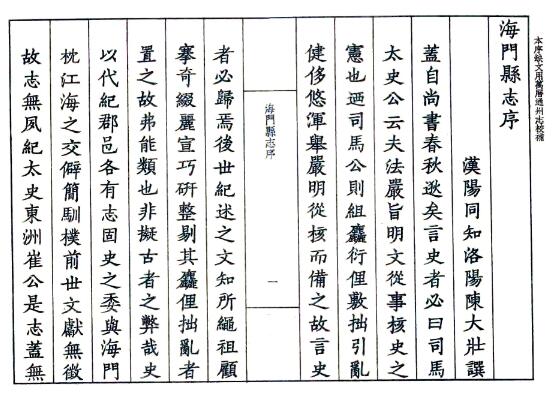 本序缺文用萬曆通州志校補
海門縣志序
漢陽同知洛陽陳大壯譔
蓋自尚書春秋逖矣言史者必曰司馬
太史公云夫法嚴旨明文從事核史之
憲也迺司馬公則組麤衍俚敷拙引亂
健侈悠渾舉嚴明從核而備之故言史
海門縣志序
一
者必歸焉後世紀述之文知所繩祖顧
搴奇綴麗宣巧硏整剔其麤俚拙亂者
置之故弗能類也非擬古者之弊哉史
以代紀郡邑各有志固史之委與海門
枕江海之交僻簡馴樸前世文獻無徵
故志無夙紀太史東洲崔公是志蓋無